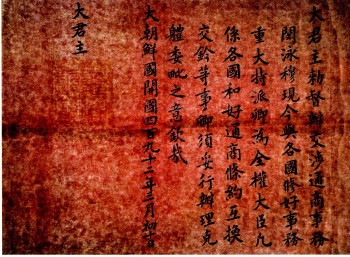 大君主勅督辦交涉通商事務
閔泳穆現今與各國修好事務
重大特派卿為全權大臣凡
係各國和好通商條約互換
交鈐等事卿須妥行辦理克
體委毗之意欽哉
大朝鮮國開國四百九十二年三月初
大君主